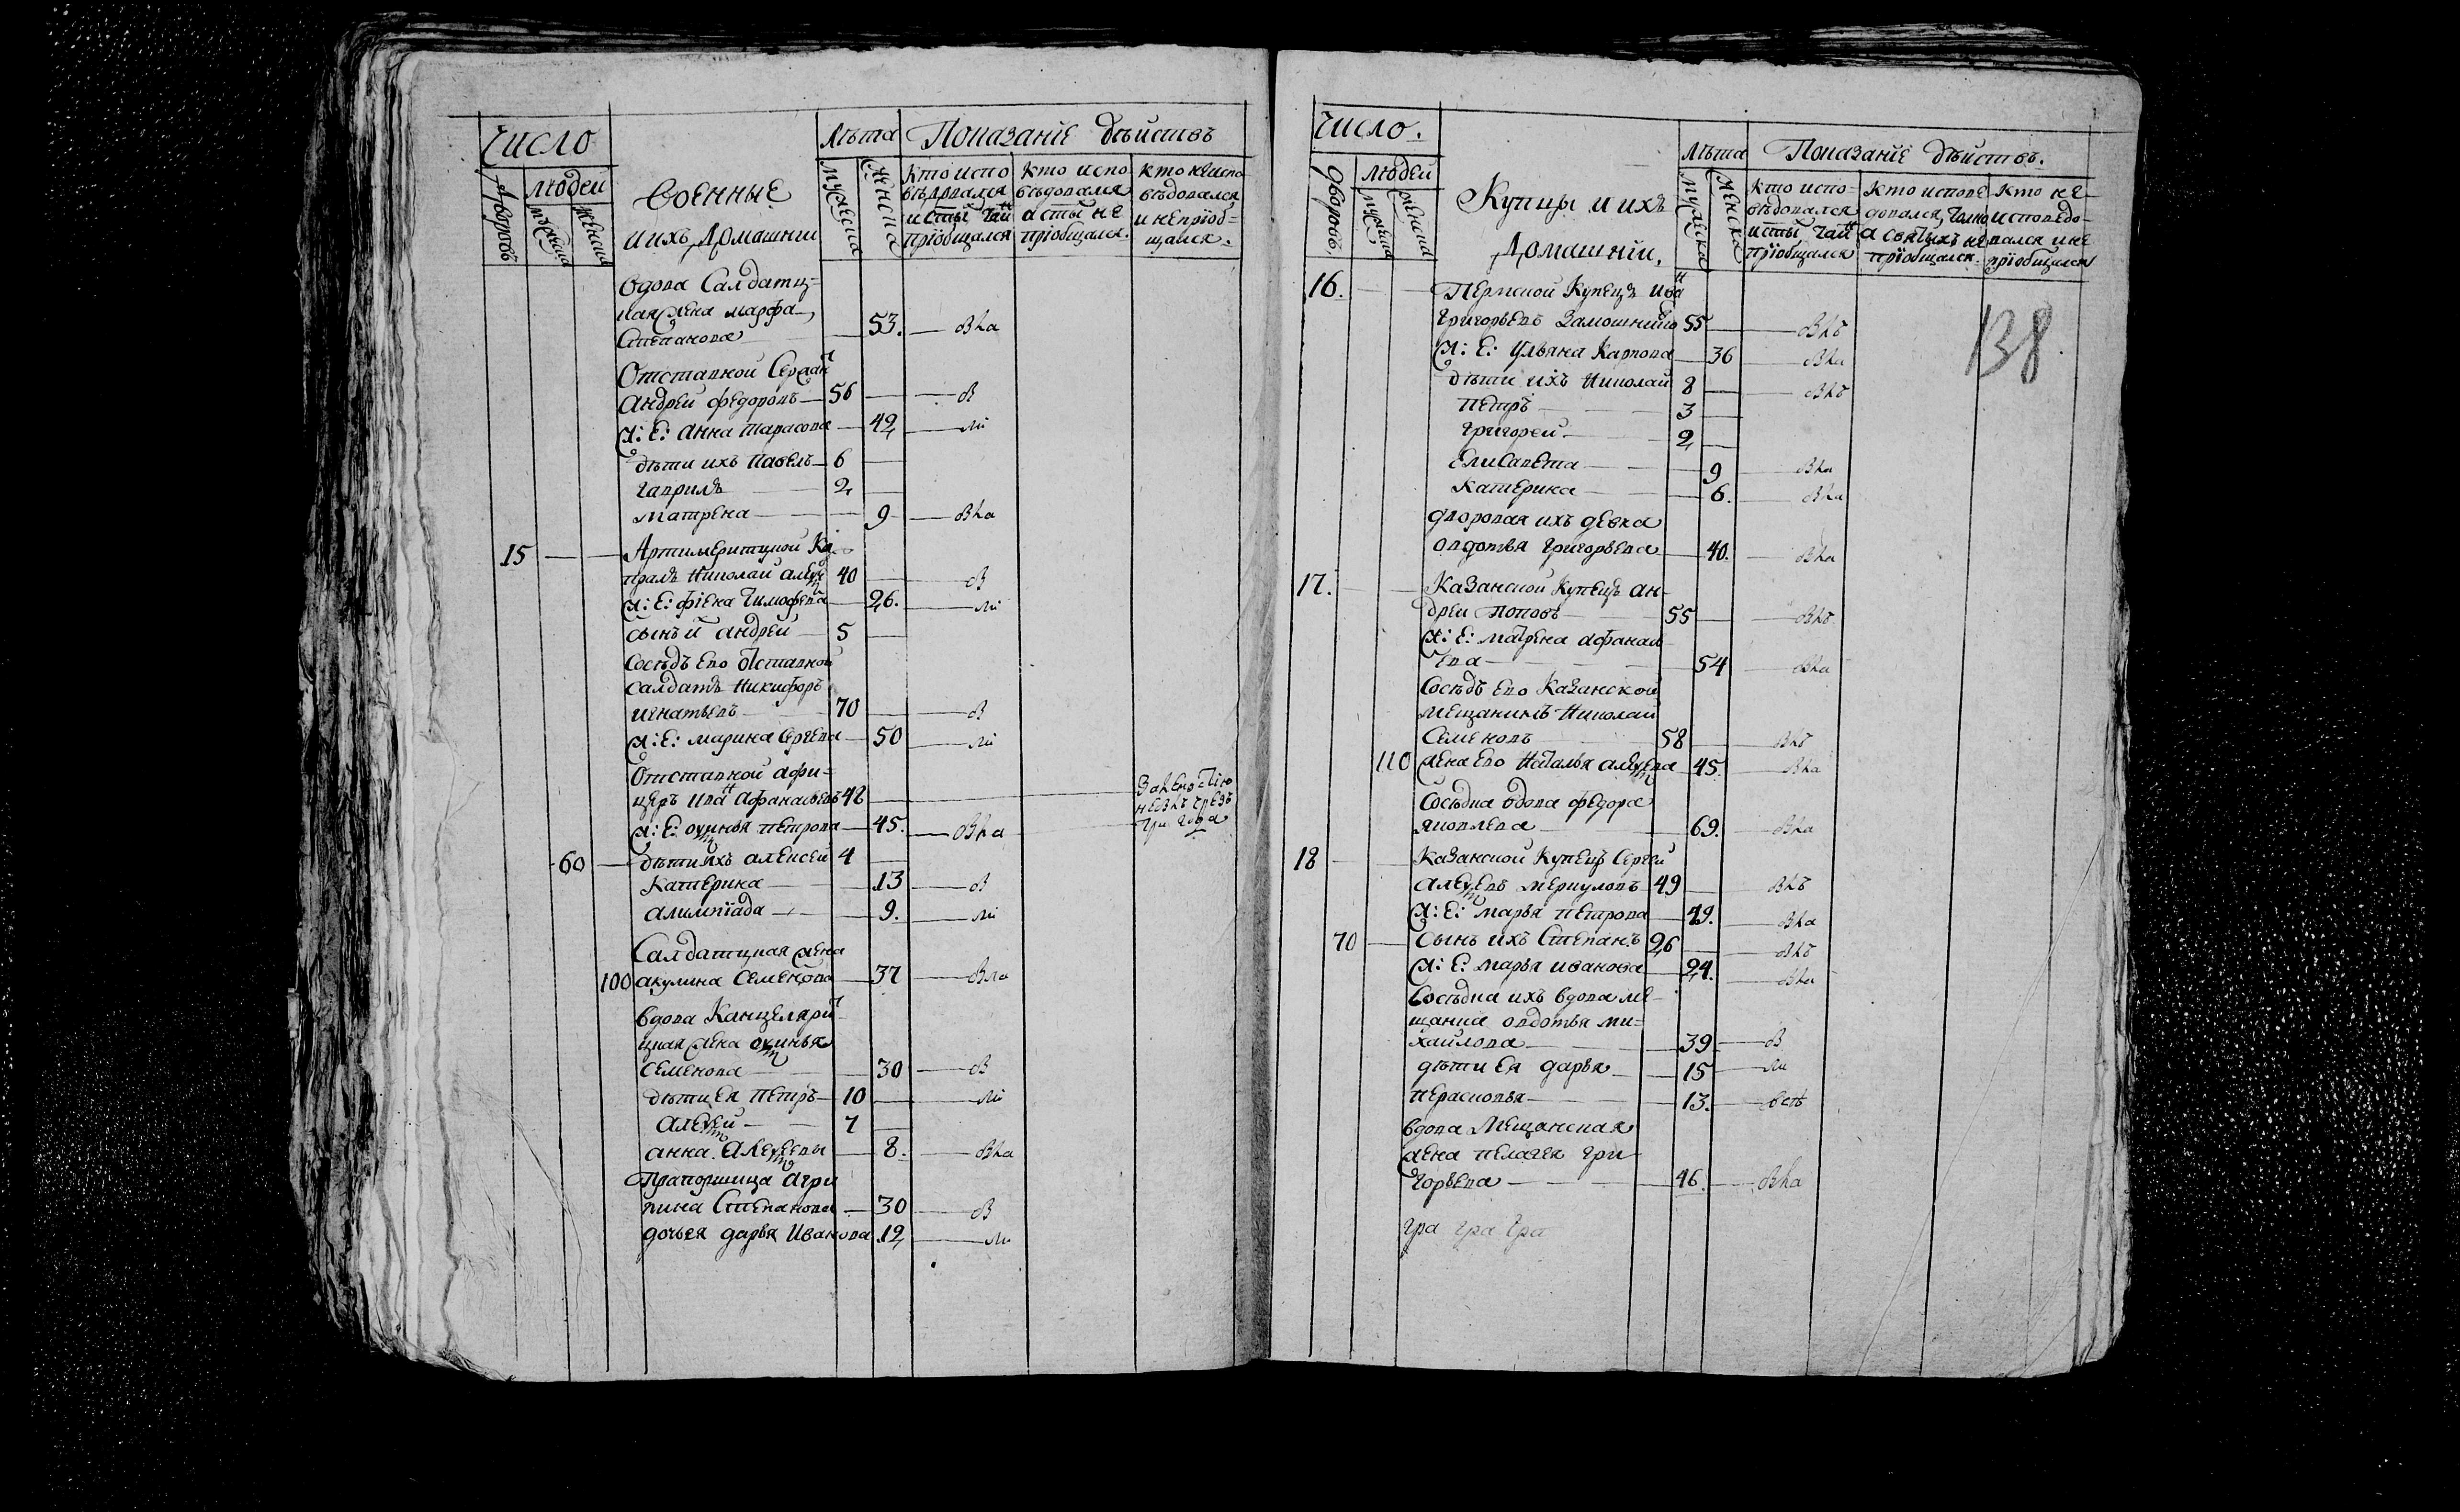 Число
Лѣта Показанїе дѣйствъ
Дворовъ
людей
мужеска
женска
военные
и ихъ домашнии
мужеска
женска
кто испо
вѣдовался
и стыⷯ таиⷩ
прїобщался
кто испо
вѣдовался
а стыⷯ не
прїобщался.
кто не испо
вѣдовался
и не прїоб=
щался.
вдова Салдатц=
кая жена марѳа
Степанова 53. Вка
Отставной Сержанⷮ
Андрей федоровъ 56 В
ж: Е: анна тарасова 42 ли
дѣти ихъ павелъ 6
гаврилъ 2
матрена 9 Вка
15 Артилеритцкой Ка
пралъ николай алеѯѣⷡ 40 В
ж: Е: фіена тимофева 26. ли
сынъ иⷯ андрей 5
Сосѣдъ Ево ѿставной
салдатъ никифоръ
игнатьевъ 70 В
ж: Е: марина Сергева 50 ли
Отставной афи=
церъ иваⷩ афанасьевъ 42
ж: Е: оѯинья петрова 45. Вка
60 дѣти ихъ алексей 4
катерина 13 В
алимпїада 9. ли
Салдатцкая жена
100 акулина Семенова 37 Вка
вдова Канцеляриⷭ
цкая жена оѯинья
семенова 30 В
дѣти Ея петръ 10 ли
алеѯей 7
анна алеѯевы 8. Вка
Прапорщица агри
пина Степанова 30 В
дочь ея дарья Иванова 12 ли
Число.
Лѣта Показанїе дѣйствъ.
дворовъ
людей
мужеска
женска
Купцы и ихъ
Домашнїи.
мужеска
женска
кто испо=
вѣдовался
и стыⷯ таиⷩ
прїобщался
кто испове
довался, токмо
а святыхъ не
прїобщался.
кто не
исповедо=
вался и не
прїобщался
138
16. Пермской Купецъ иваⷩ
григорьевъ Замошниковⷡ 55 Вкъ
ж: Е: ульяна Карпова 36 Вка
дѣти ихъ николай 8 Вкъ
петръ 3
григорей 2
елисавета 9 Вка
катерина 6. Вка
дворовая ихъ девка
овдотья григорьева 40. Вка
17. Казанской Купецъ ан
дрей поповъ 55 Вкъ
ж: Е: матрена афанась
ева 54 Вка
Сосѣдъ ево Казанской
мещанинъ николай
Семеновъ 58 Вкъ
110 жена ево наталья алеѯева 45. Вка
Сосѣдка вдова федора
яковлева 69. Вка
18 Казанской Купецъ Сергей
алеѯевъ меркуловъ 49 Вкъ
ж: Е: марья петрова 49. Вка
70 сынъ ихъ Степанъ 26 Вкъ
ж: Е: марья иванова 24. Вка
Сосѣдка ихъ вдова ме
щанка овдотья ми=
хайлова 39 В
дѣти ея дарья 15 ли
перасковья 13.
вдова мещанская
жена пелагея гри
горьева 46. Вка
гра гра гра